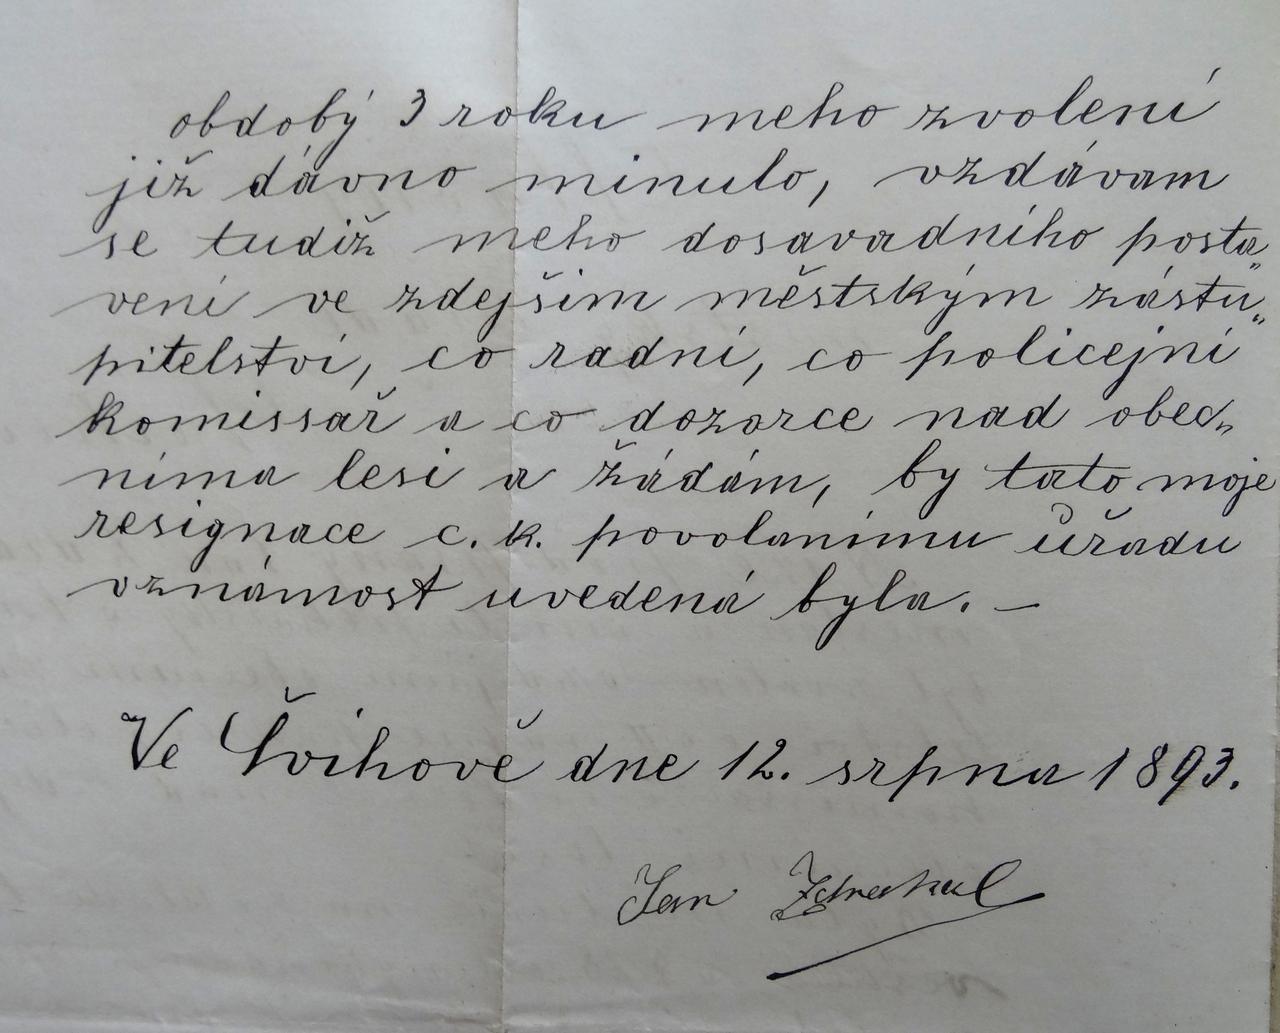 obdobý 3 roku meho zvolení
již dávno minulo, vzdávam
se tudiž meho dosavadního posta„
vení ve zdejšim městským zástu„
pitelství, co radní, co policejní
komissař a co dozorce nad obec„
níma lesi a žádám, by tato moje
resignace c. k. povolánímu úřadu
vznámost uvedená byla. —
Ve Švihově dne 12. srpna 1893.
Jan